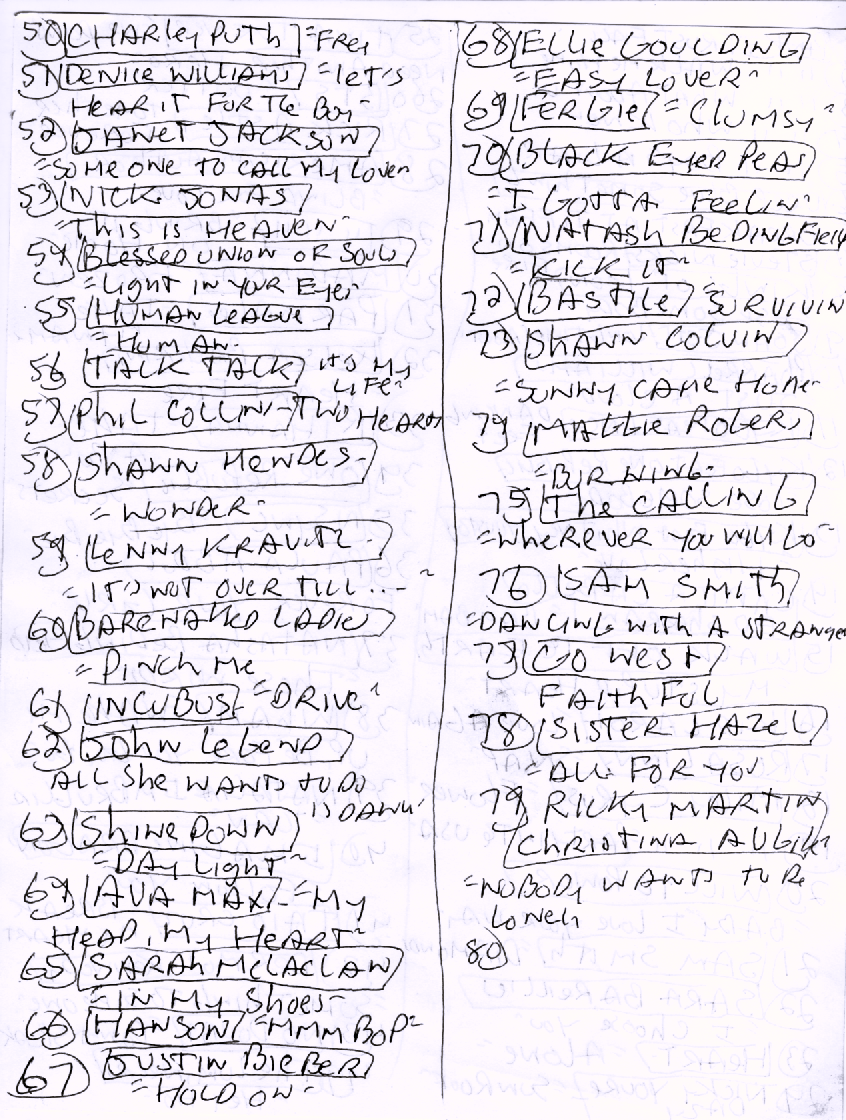 50) CHARLEY PUTH = FREY
51) DENICE WILLIAMS = LET'S
HEAR IT FOR THE BOY
52) JANET JACKSON
= SOMEONE TO CALL MY LOVER
53) NICK JONAS
THIS IS HEAVEN
54) BLESSED UNION OF SOULS
= LIGHT IN YOUR EYES
55) HUMAN LEAGUE
= HUMAN
56) TALK TALK IT'S MY
LIFE
57) PHIL COLLINS - TWO HEARTS
58) SHAWN MENDES
= WONDER
59) LENNY KRAVITZ
= IT'S NOT OVER TILL...
60) BARENAKED LADIES
= PINCH ME
61) INCUBUS = DRIVE
62) JOHN LEGEND
ALL SHE WANTS TO DO
IS DANCE
63) SHINEDOWN
= DAYLIGHT
64) AVA MAX = MY
HEAD, MY HEART
65) SARAH MCLACLAN
= IN MY SHOES
66) HANSON = MMMBOP
67) JUSTIN BIEBER
= HOLD ON
68) ELLIE GOULDING
= EASY LOVER
69) FERGIE = CLUMSY
70) BLACK EYED PEAS
= I GOTTA FEELIN
71) NATASH BEDINGFIELD
= KICK IT
72) BASTILE = SURVIVIN
73) SHAWN COLVIN
= SUNNY CAME HOME
74) MAGGIE ROGERS
= BURNING
75) THE CALLING
= WHEREVER YOU WILL GO
76) SAM SMITH
= DANCING WITH A STRANGER
77) GO WEST
FAITHFUL
78) SISTER HAZEL
= ALL FOR YOU
79 RICKY MARTIN
CHRISTINA AGUILE
= NOBODY WANTS TO BE
LONELY
80)